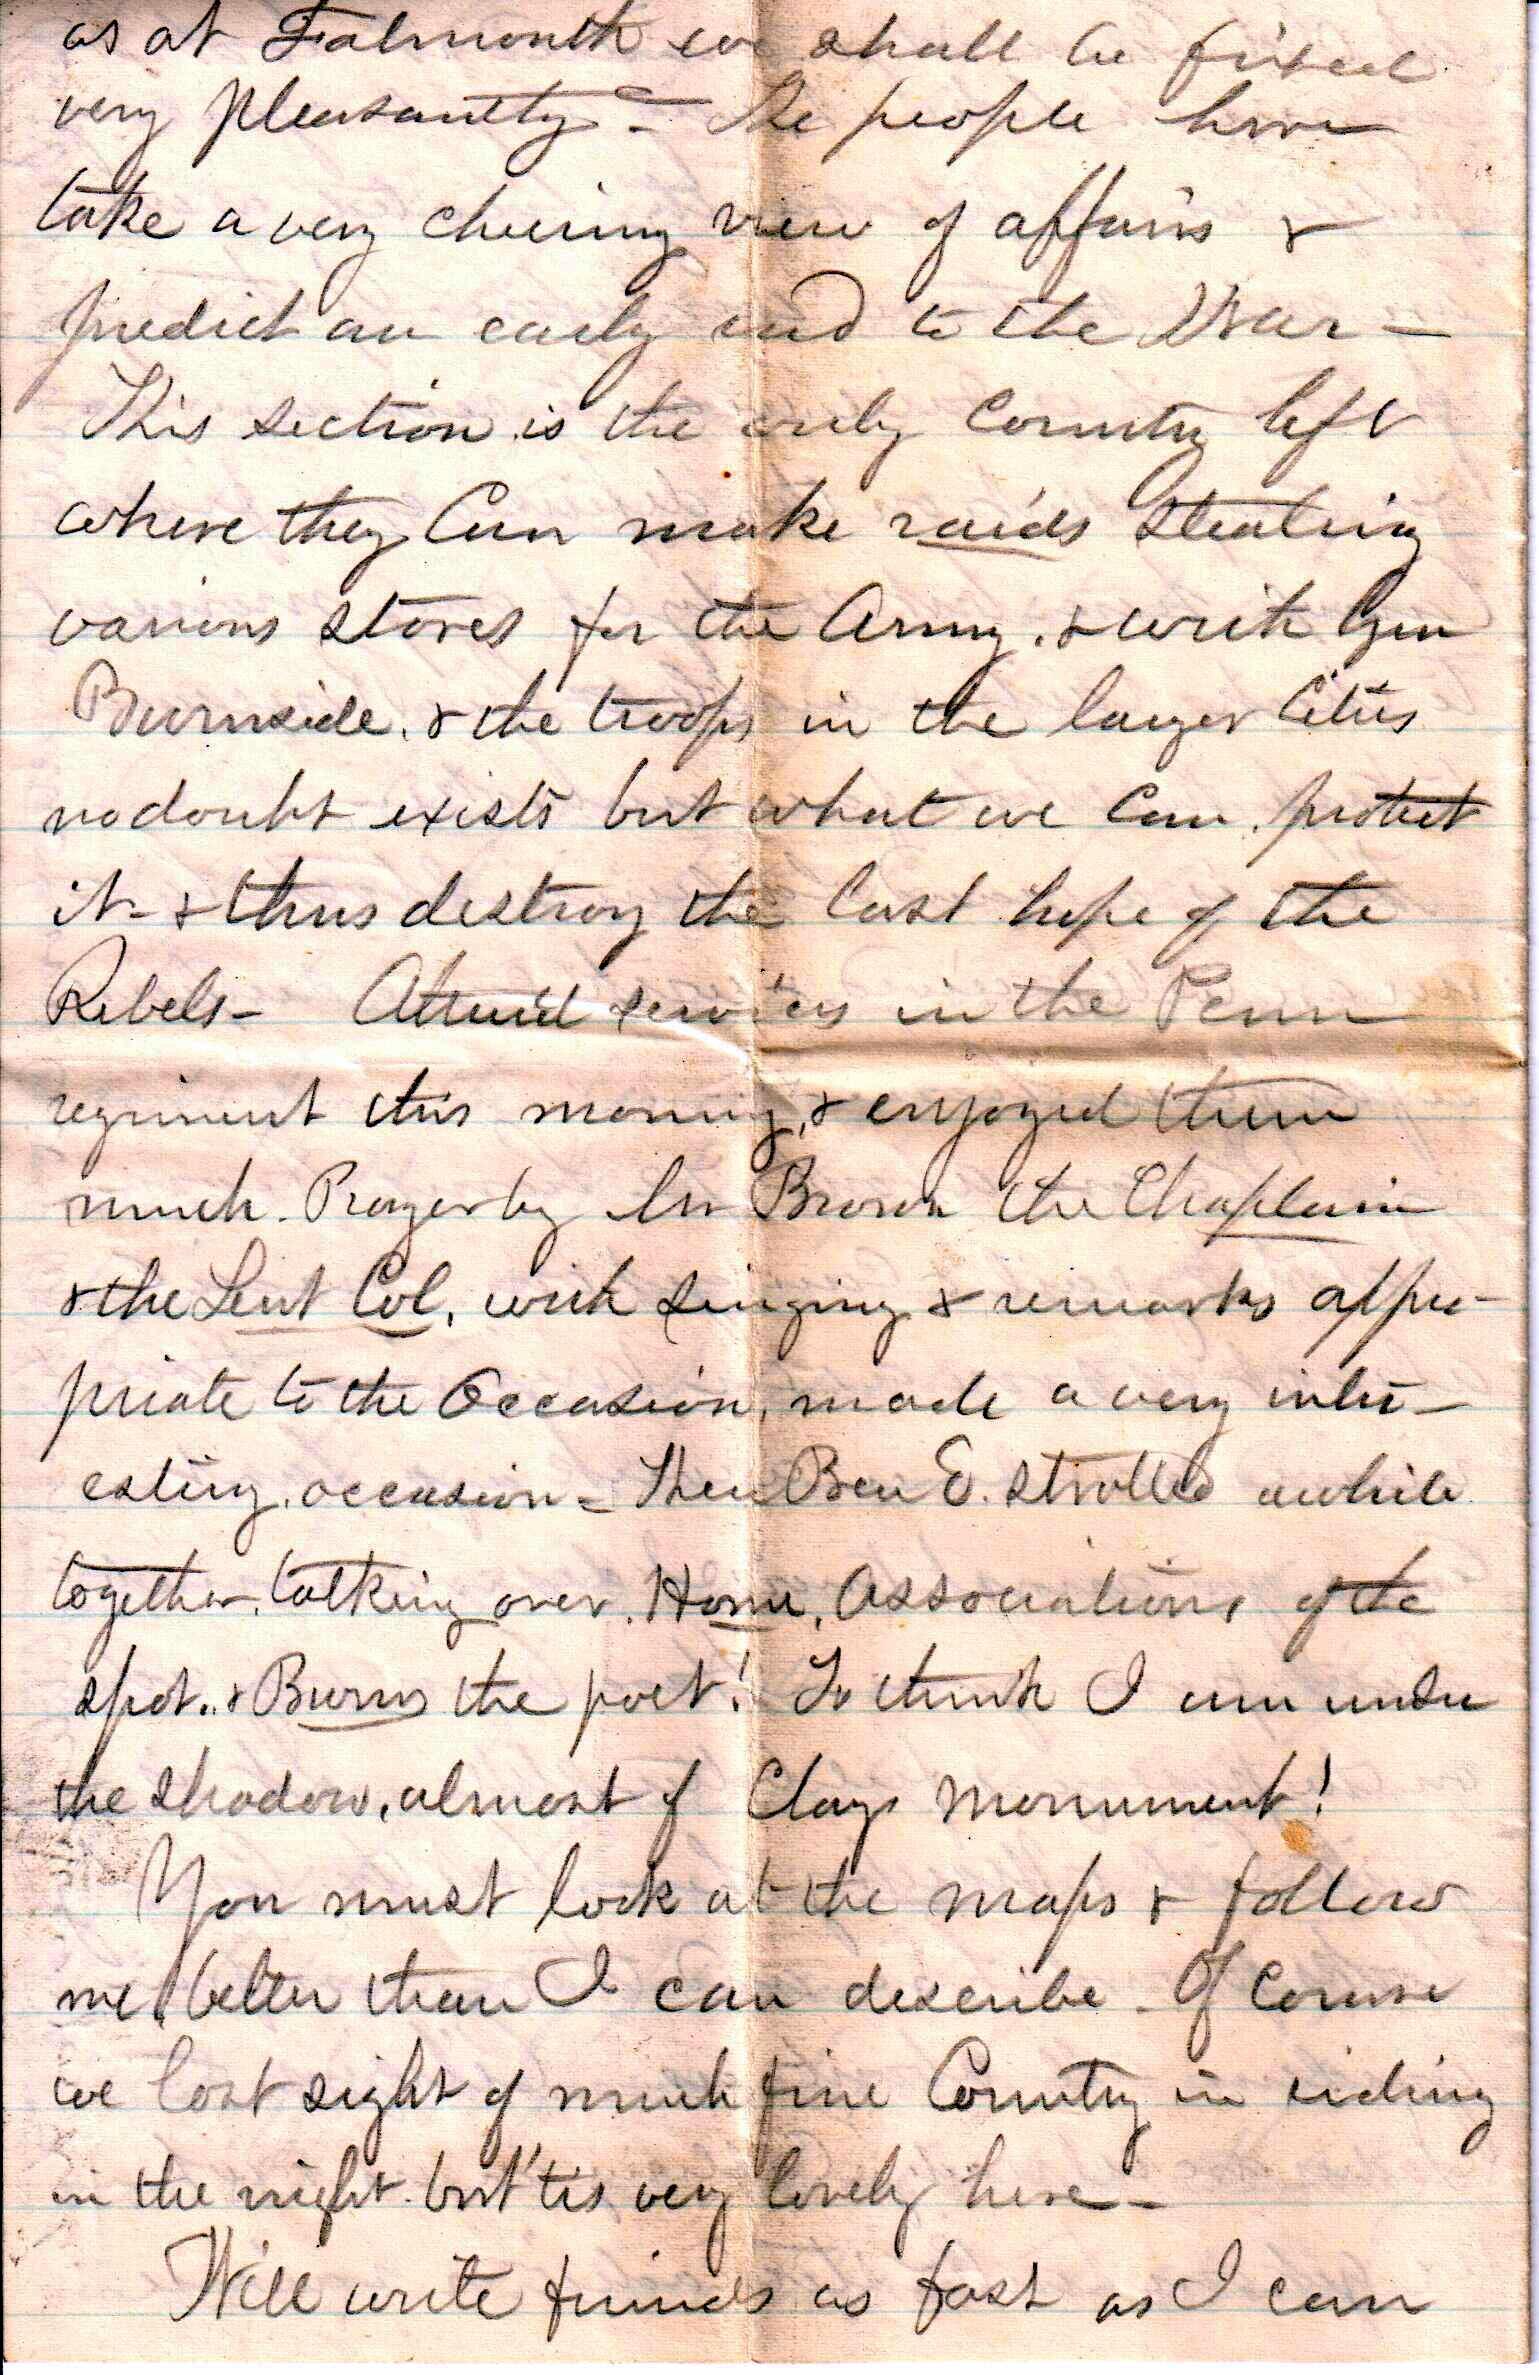 as at Falmouth we shall be fixed
very pleasantly - The people here
take a very cheering view of affairs &
predict an early end to the War -
This section is the only Country left
where they Can make raids stealing
various stores for the Army. & with Gen
Burnside. & the troops in the larger Cities
no doubt exists but what we Can protect
it - & thus destroy the last hope of the
Rebels - Attend services in the Penn
regiment this morning, & enjoyed them
much. Prayer by Mr Brown the Chaplain
& the Leut Col. with singing & remarks appro-
priate to the Occasion, made a very inter-
esting. occasion - Then Ben E. strolled awhile
together, talking over. Home, Associations of the
spot.. & Burns the poet! To think I am under
the shadow, almost of Clays monument!
You must look at the maps & follow
me better than I can describe - Of Course
we lost sight of much fine Country in riding
in the night. but 'tis very lovely here -
Will write friends as fast as I can